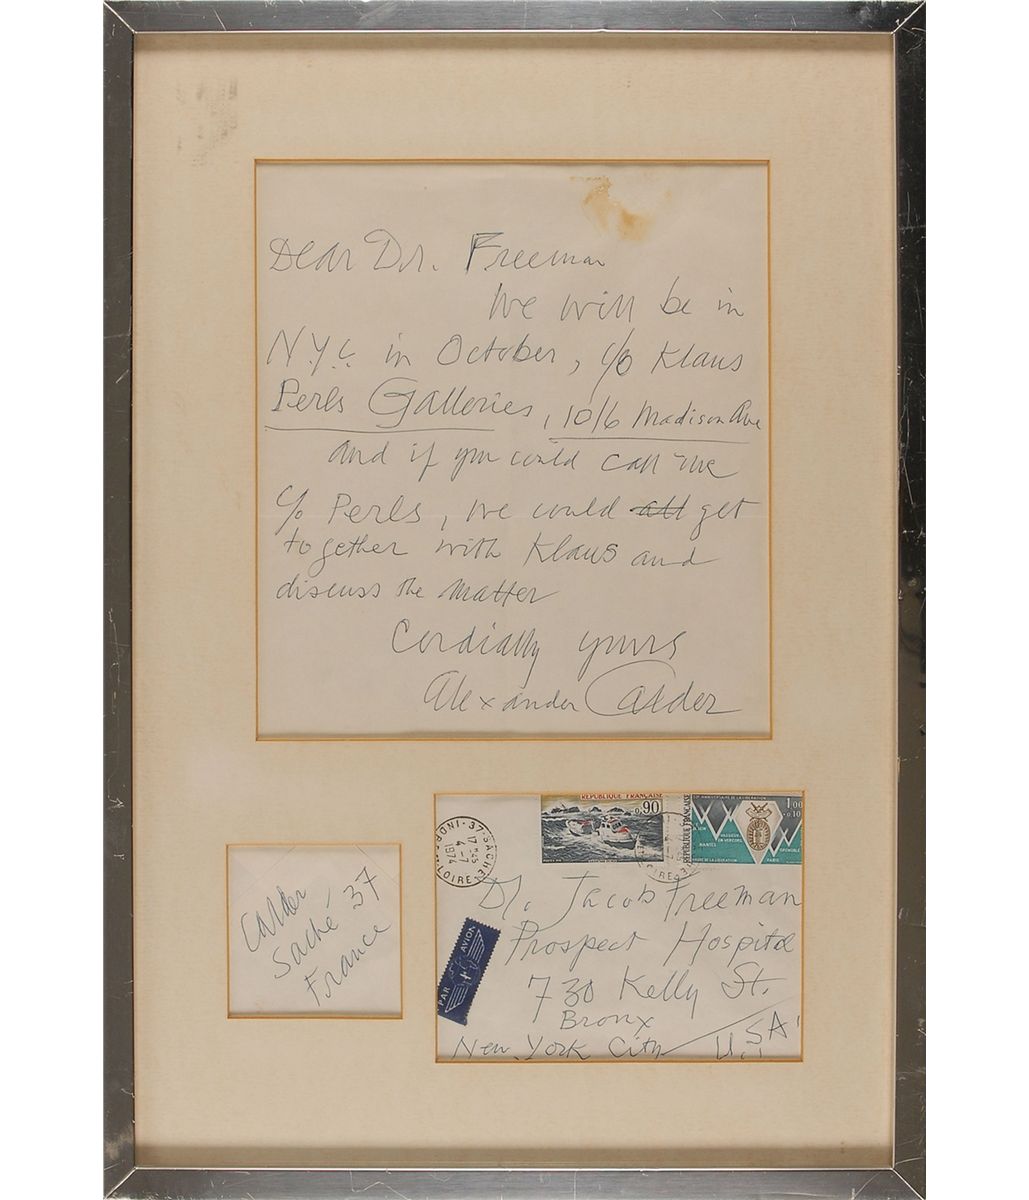 Dear Dr. Freeman
We will be in
N.Y.C. in October, c/o Klaus
Perls Galleries, 1016 Madison Ave
and if you could call me
c/o Perls, we could all get
together with Klaus and
discuss the matter
Cordially yours
Alexander Calder
Calder
Saché 37
France
37-SACHE
17H45
4-7
1974
LOIRE
REPUBLIQUE FRANÇAISE
0.90
ANNIVERSAIRE DE LA LIBERATION
1.00
+0.10
REPUBLIQUE FRANÇAISE
VASSIEUX-
EN-VERCORS
NANTES
GRENOBLE
PARIS
ORDRE DE LA LIBERATION
PAR AVION
Dr. Jacob Freeman
Prospect Hospital
730 Kelly St.
Bronx
New York City U.S.A